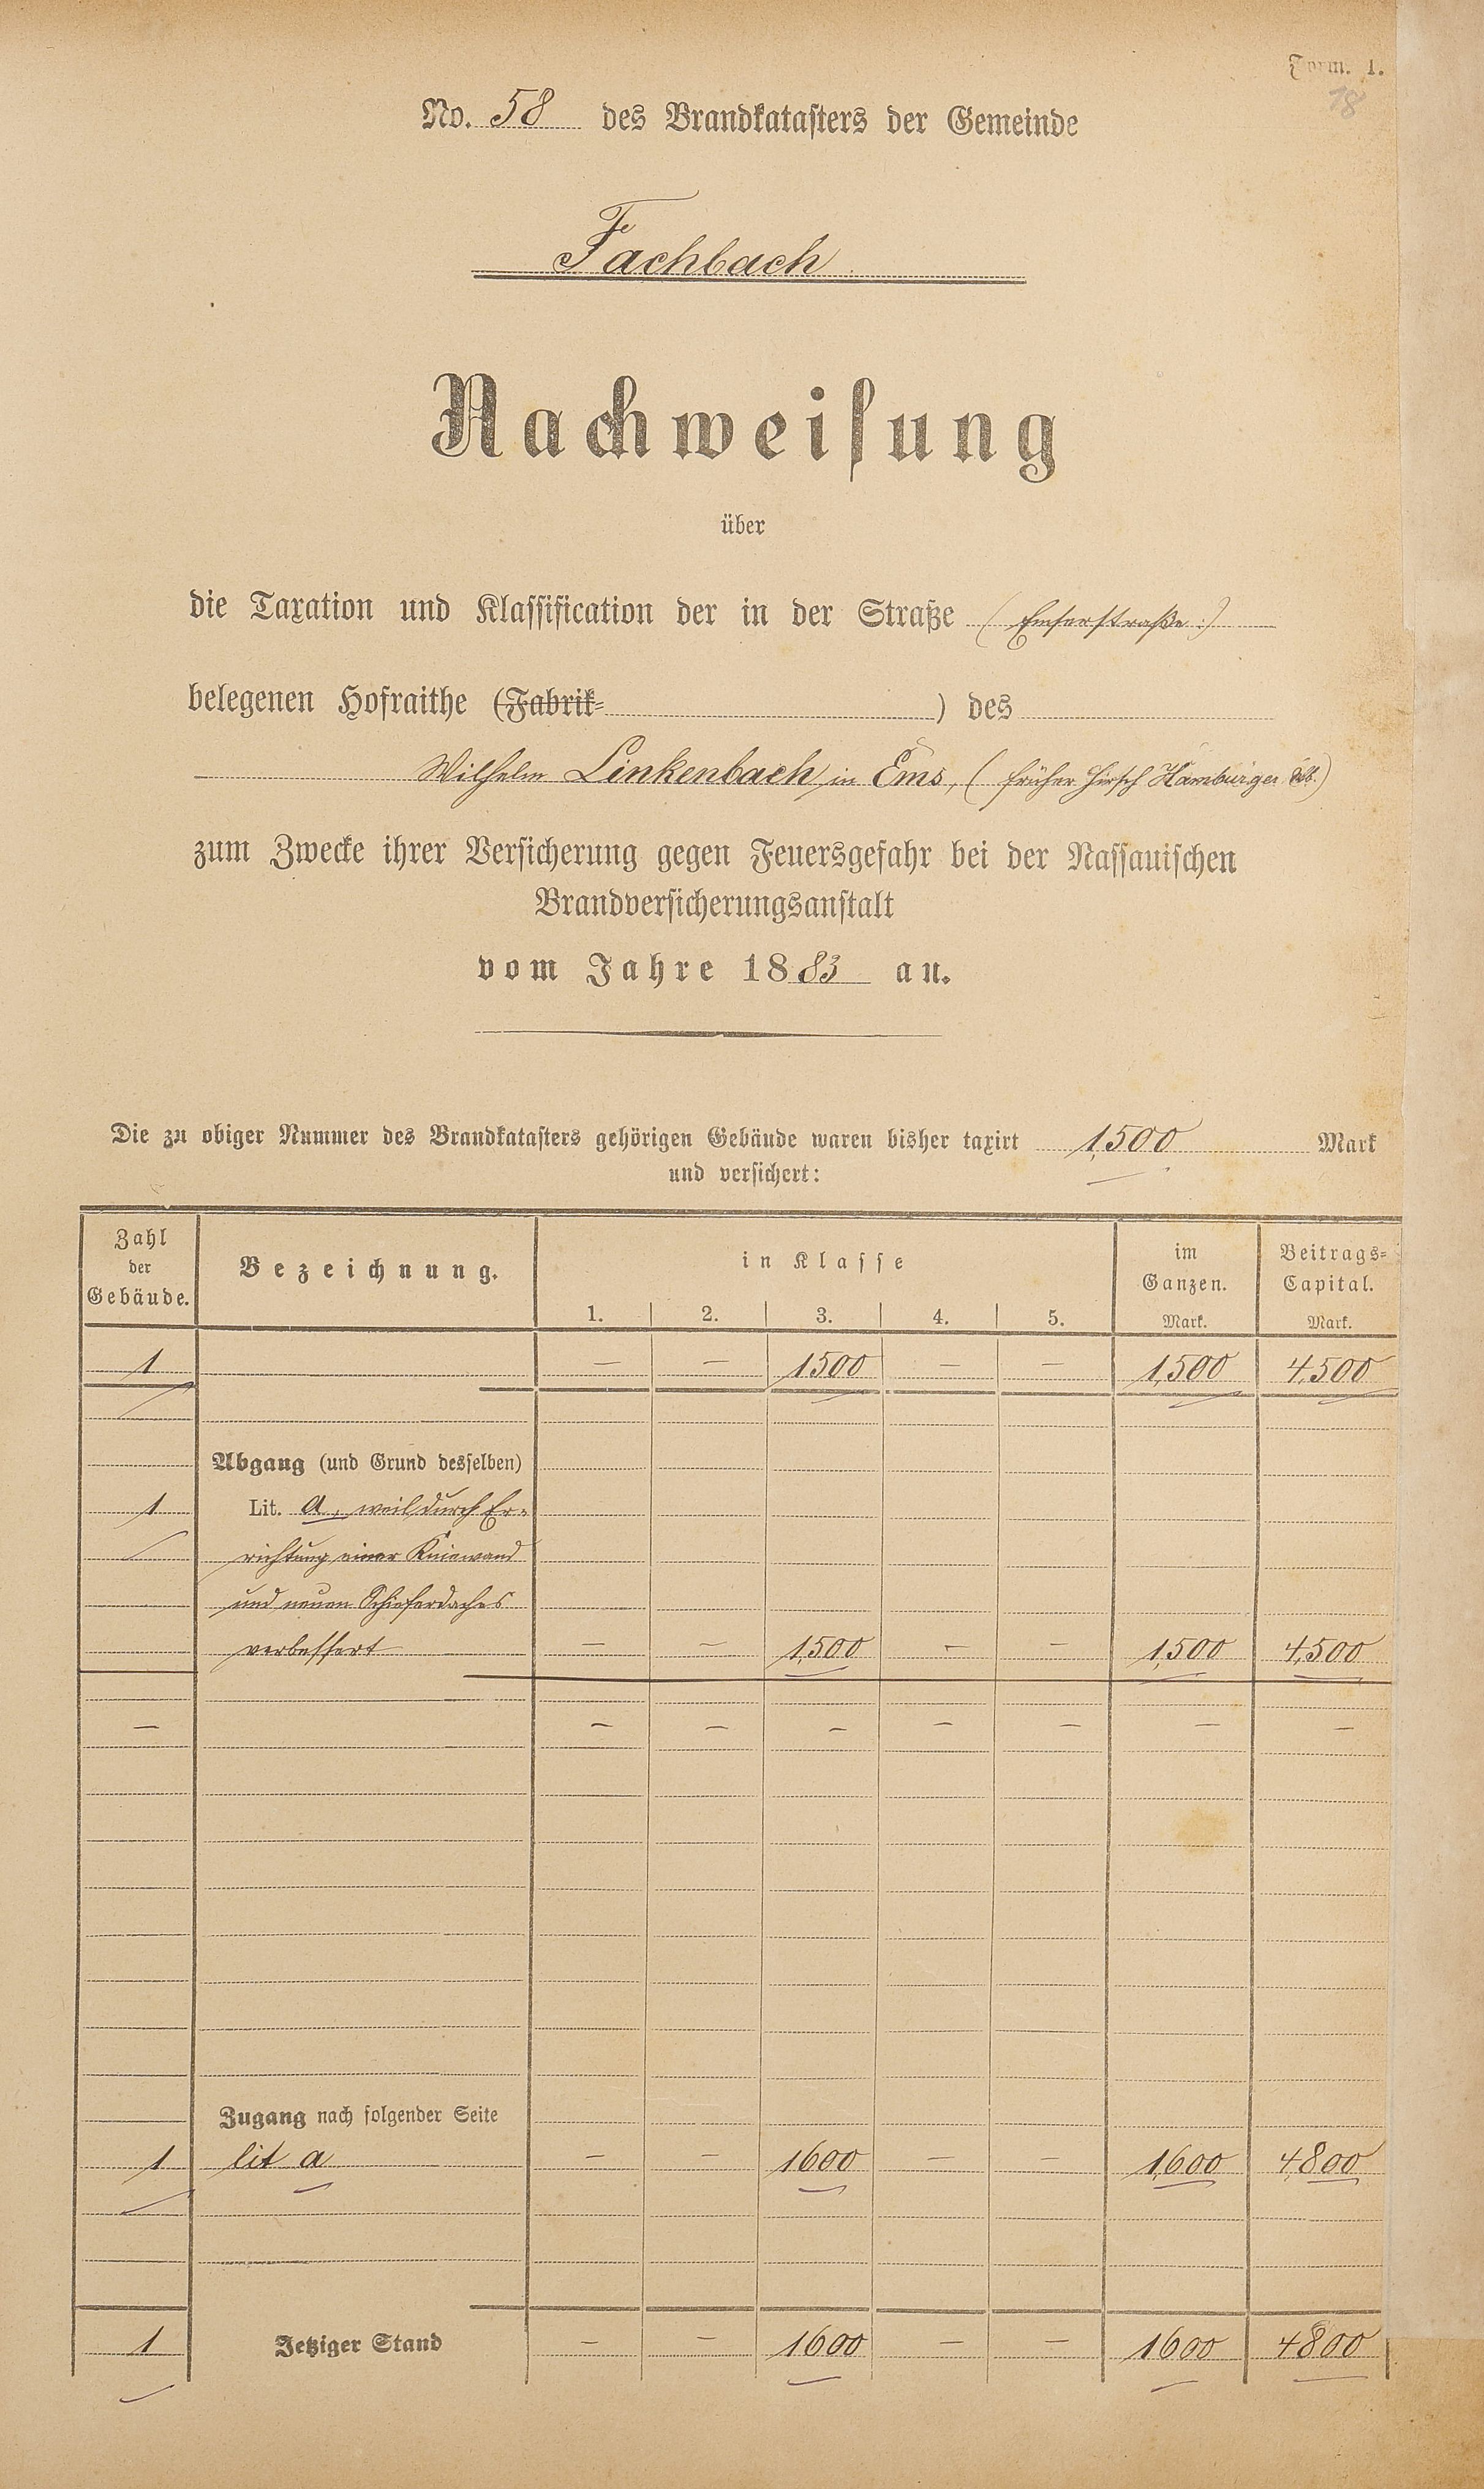 Form. 1.
18
No. 58 des Brandkatasters der Gemeinde
Fachbach
Nachweisung
über
die Taxation und Klassification der in der Straße (Emserstraße:)
belegenen Hofraithe (Fabrik- ) des
Wilhelm Linkenbach in Ems, (früher Hirsch Hamburger das.)
zum Zwecke ihrer Versicherung gegen Feuersgefahr bei der Nassauischen
Brandversicherungsanstalt
vom Jahre 1883 an.
Die zu obiger Nummer des Brandkatasters gehörigen Gebäude waren bisher taxirt 1,500 Mark
und versichert:
Zahl der Gebäude. Bezeichnung. in Klasse im Ganzen. Beitrags-Capital.
1. 2. 3. 4. 5. Mark. Mark.
1 — — 1500 — — 1,500 4,500
Abgang (und Grund desselben)
1 Lit. a, weil durch Er-
richtung einer Kniewand
und neuen Schieferdaches
verbessert — — 1,500 — — 1,500 4,500
— — — — — — — —
Zugang nach folgender Seite
1 lit a — — 1600 — — 1,600 4,800
1 Jetziger Stand — — 1600 — — 1600 4800